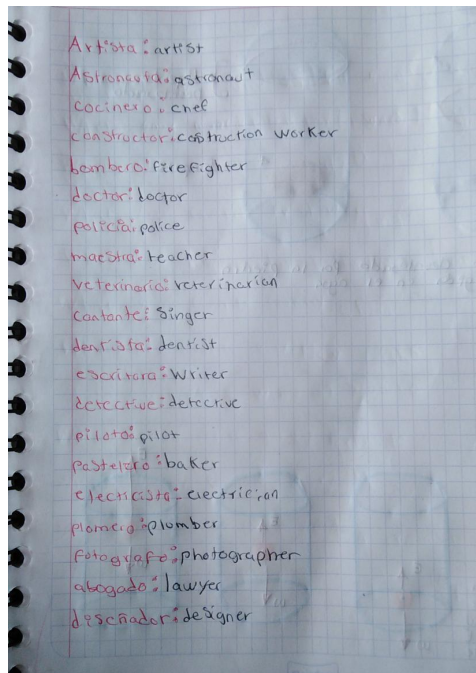 Artista: artist
Astronauta: astronaut
cocinero: chef
constructor: construction worker
bombero: firefighter
doctor: doctor
policia: police
maestra: teacher
veterinario: veterinarian
cantante: Singer
dentista: dentist
escritora: Writer
detective: detective
piloto: pilot
pastelero: baker
electicista: electrician
plomero: plumber
fotografo: photographer
abogado: lawyer
diseñador: designer